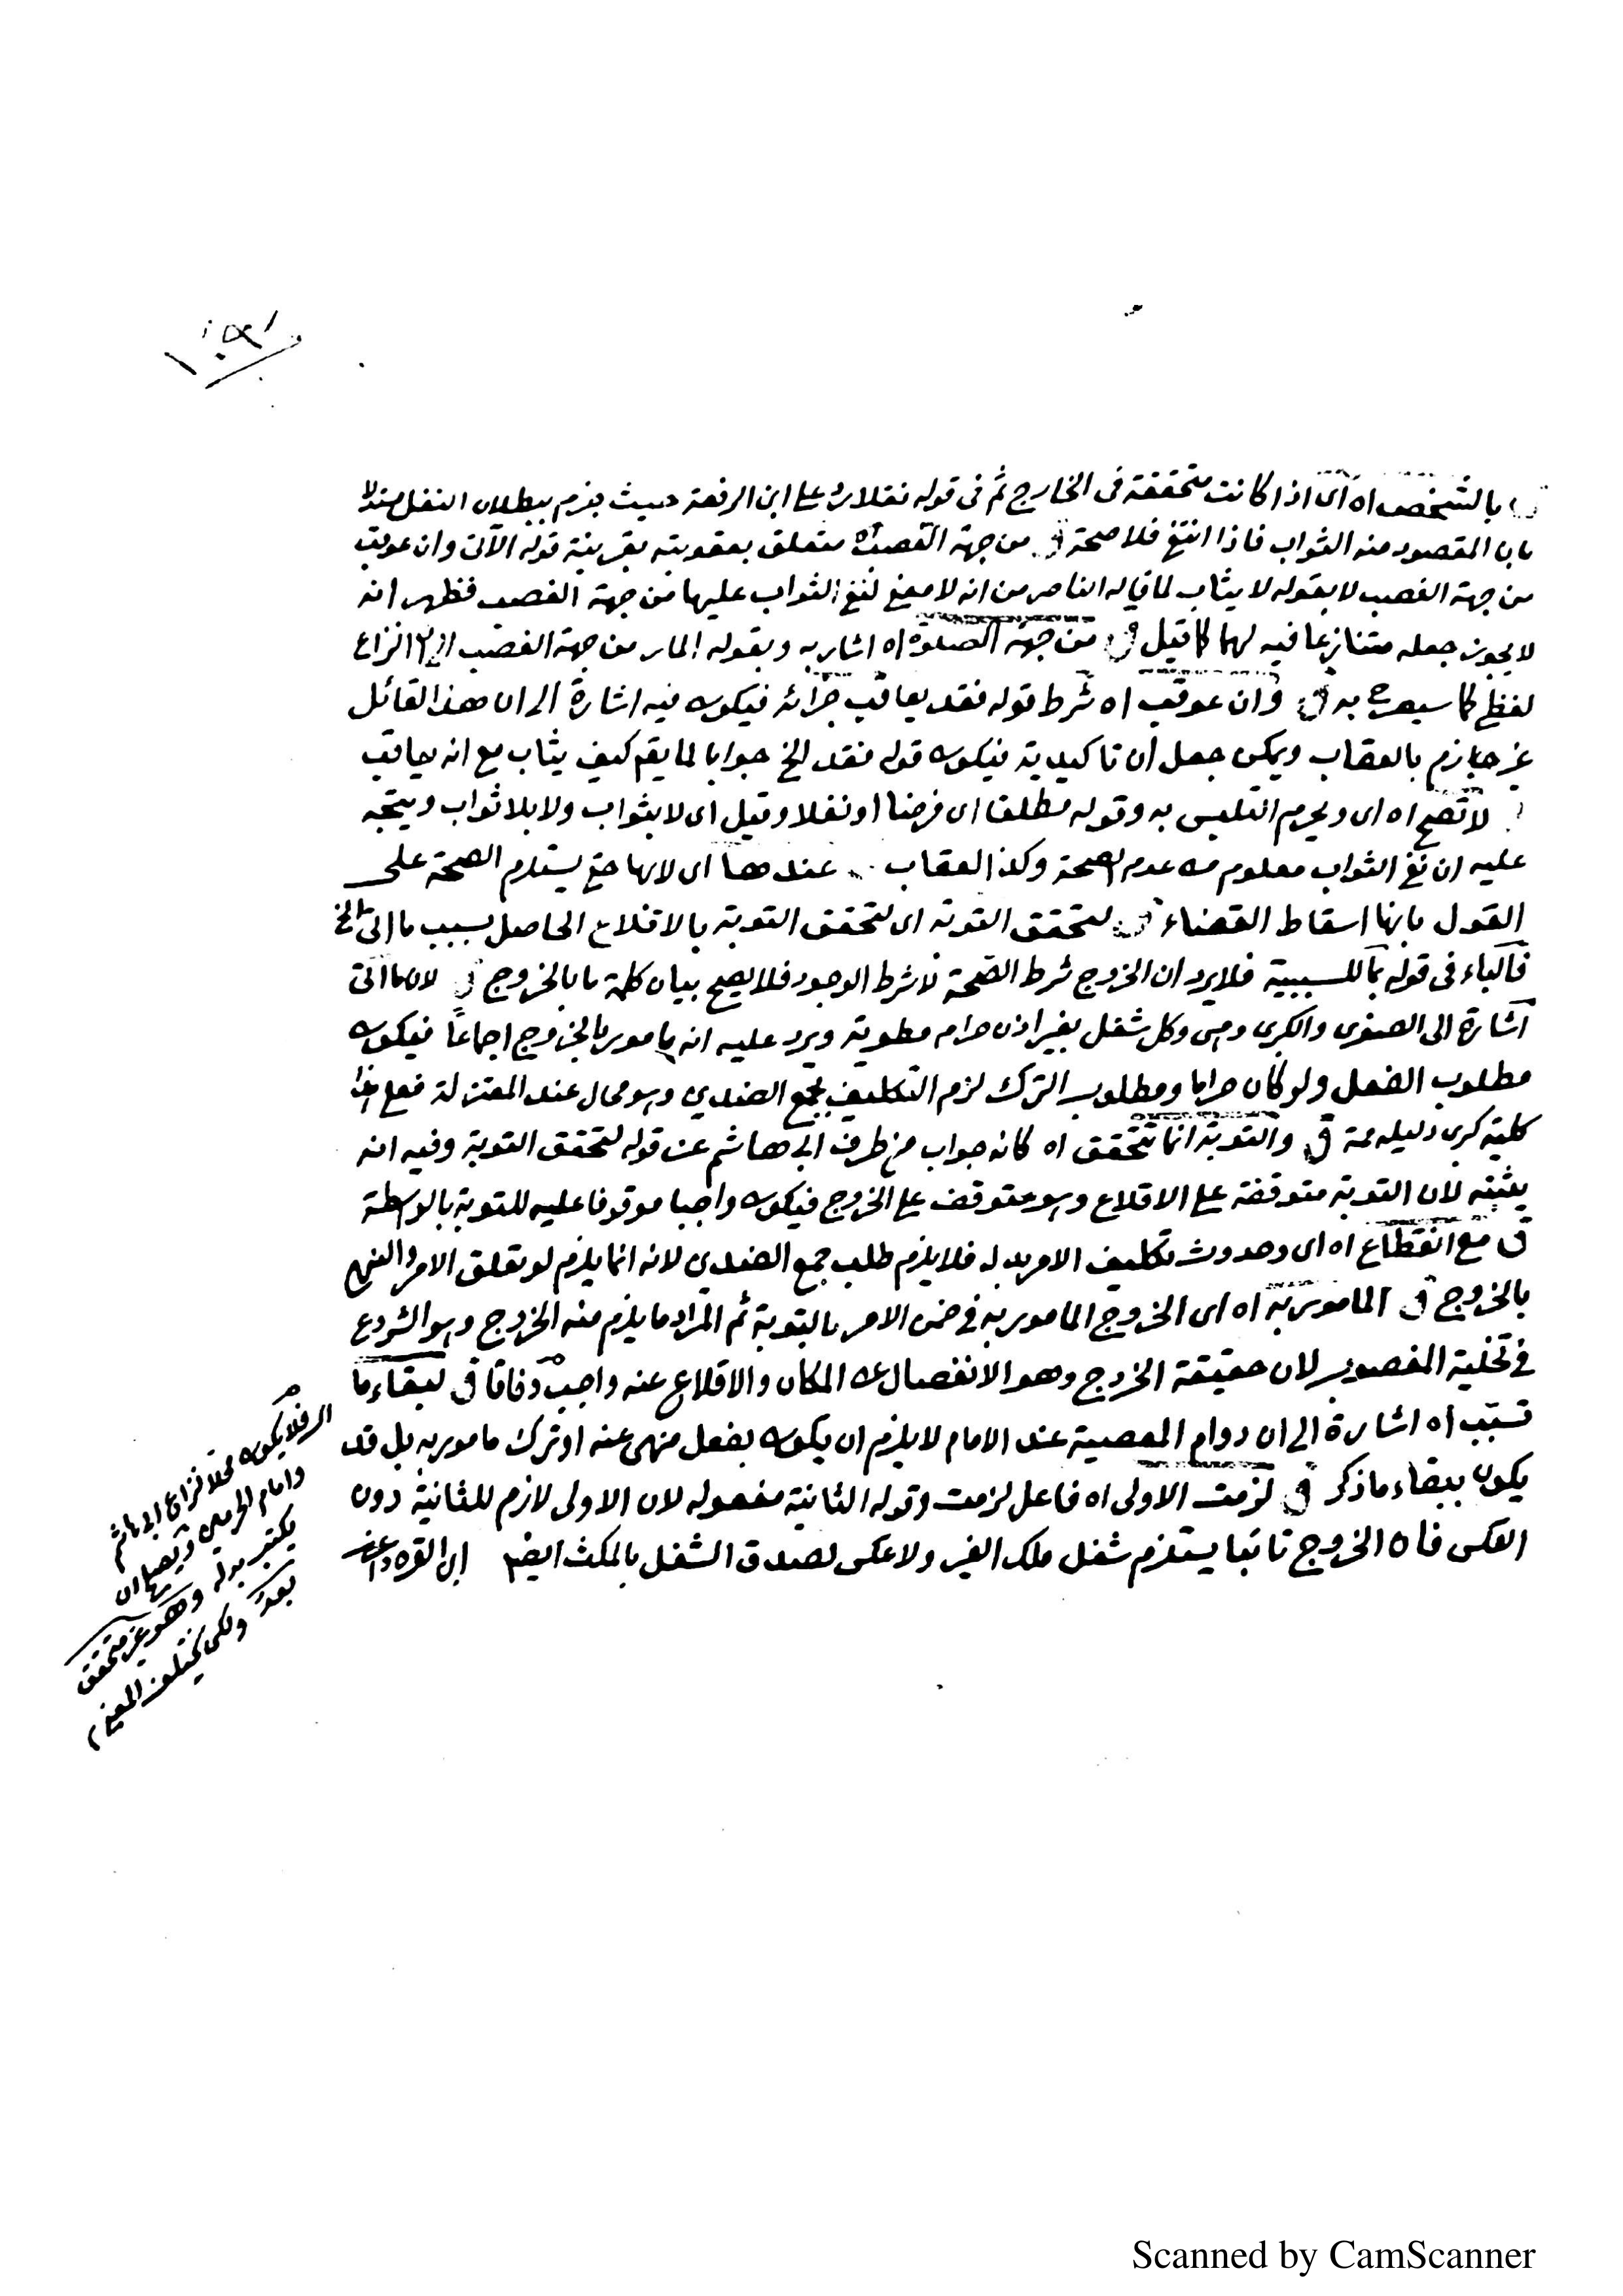 بالشخص اه اى اذا كانت متحققة فى الخارج ثم فى قوله نقلا رد على ابن الرفعة حيث يجزم ببطلان النفل مستدلا
بان المقصود منه الثواب فاذا انتفى فلا صحة ق من جهة الغصب اه متعلق بعقوبته بقرينة قوله الآتى وان عوقب
من جهة الغصب لا بقوله لا يثاب لما قاله الناصر من انه لا معنى لنفى الثواب عليها من جهة الغصب فظهر انه
لا يجوز جعله متنازعا فيه لهما كما قيل ق من جهة الصلوة اه اشار به وبقوله المار من جهة الغصب الى ان النزاع
لفظى كما سيصرح به ق وان عوقب اه شرط قوله فقد يعاقب جزائه فيكون فيه اشارة الى ان هذا القائل
غير جازم بالعقاب ويمكن جعل ان تاكيدية فيكون قوله فقد الخ جوابا لما يقم كيف يثاب مع انه يعاقب
لا تصح اه اى ويحرم التلبس به وقوله مطلقا اى فرضا او نفلا وقيل اى لا بثواب ولا بلا ثواب ويتجه
عليه ان نفى الثواب معلوم من عدم الصحة وكذا العقاب عندها اى لا بها حتى يستلزم الصحة على
القول بانها اسقاط القضاء ق لتحقق التوبة اى لتحقق التوبة بالاقلاع الحاصل بسبب ما اتى الخ
فالباء فى قوله بما للسببية فلا يرد ان الخروج شرط الصحة لا شرط الوجود فلا يصح بيان كلمة ما بالخروج ق لان ما اتى
اشارة الى الصغرى والكبرى وهى وكل شغل بغير اذن حرام مطوية ويرد عليه انه مامور بالخروج اجماعا فيكون
مطلوب الفعل ولو كان حراما ومطلوب الترك لزم التكليف بجمع الضدين وهو محال عند المعتزلة فعلى هذا
كلية كبرى دليله ممة ق والتوبة انما تتحقق اه كانه جواب من طرف ابى هاشم عن قوله لتحقق التوبة وفيه انه
يثبته لان التوبة متوقفة على الاقلاع وهو متوقف على الخروج فيكون واجبا موقوفا عليه للتوبة بالواسطة
ق مع انقطاع اه اى وحدوث تكليف الامر بدله فلا يلزم طلب جمع الضدين لانه انما يلزم لو تعلق الامر والنهى
بالخروج ق المامور به اه اى الخروج المامور به فى ضمن الامر بالتوبة ثم المراد ما يلزم منه الخروج وهو الشروع
فى تخلية المغصوب لان حقيقة الخروج وهو الانفصال عن المكان والاقلاع عنه واجب وفاقا ق لبقاء ما
تسبب اه اشارة الى ان دوام المعصية عند الامام لا يلزم ان يكون بفعل منهى عنه او ترك مامور به بل قد
يكون ببقاء ما ذكر ق لزمت الاولى اه فاعل لزمت وقوله الثانية مفعوله لان الاولى لازم للثانية دون
العكس فان الخروج تائبا يستلزم شغل ملك الغير ولا عكس لصدق الشغل بالمكث ايضا ابن القره داغى
فلا يكون محلا لنزاع ابى هاشم
وامام الحرمين
يكتبر بوله وهو غير متحقق
بعد ولكن يختلف المعنى م
Scanned by CamScanner